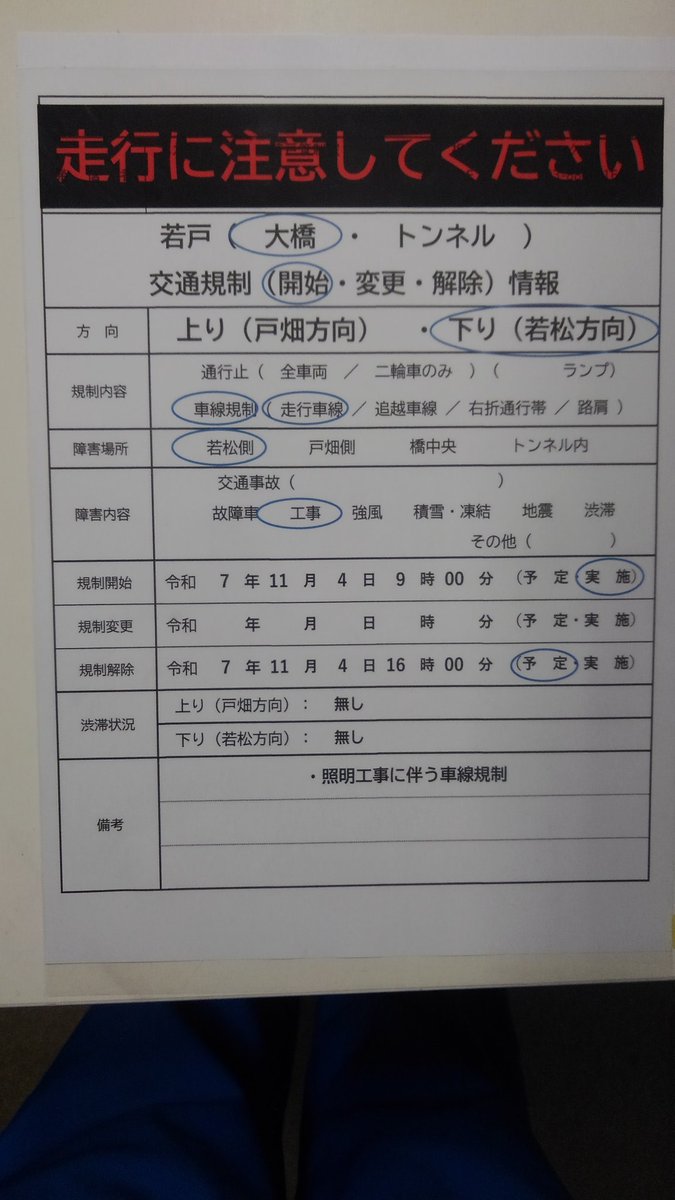 走行に注意してください
若戸（ 大橋 ・ トンネル ）
交通規制（開始・変更・解除）情報
方 向 上り（戸畑方向） ・下り（若松方向）
規制内容 通行止（ 全車両 ／ 二輪車のみ ）（ ランプ）
車線規制（ 走行車線 ／ 追越車線 ／ 右折通行帯 ／ 路肩 ）
障害場所 若松側 戸畑側 橋中央 トンネル内
障害内容 交通事故（ ）
故障車 工事 強風 積雪・凍結 地震 渋滞
その他（ ）
規制開始 令和 7 年 11 月 4 日 9 時 00 分 （予 定・実 施）
規制変更 令和 年 月 日 時 分 （予 定・実 施）
規制解除 令和 7 年 11 月 4 日 16 時 00 分 （予 定・実 施）
渋滞状況 上り（戸畑方向）： 無し
下り（若松方向）： 無し
備考 ・照明工事に伴う車線規制